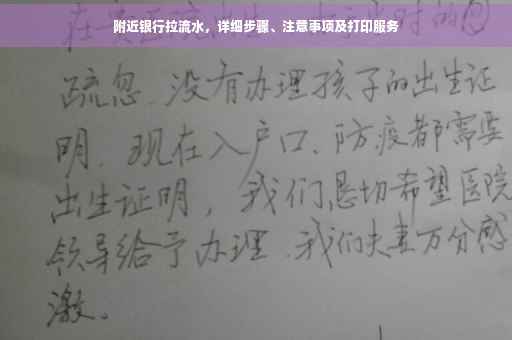 附近银行拉流水，详细步骤、注意事项及打印服务
疏忽.没有办理孩子的出生证
明.现在入户口、防疫都需要
出生证明，我们恳切希望医院
领导给予办理.我们夫妻万分感
激。